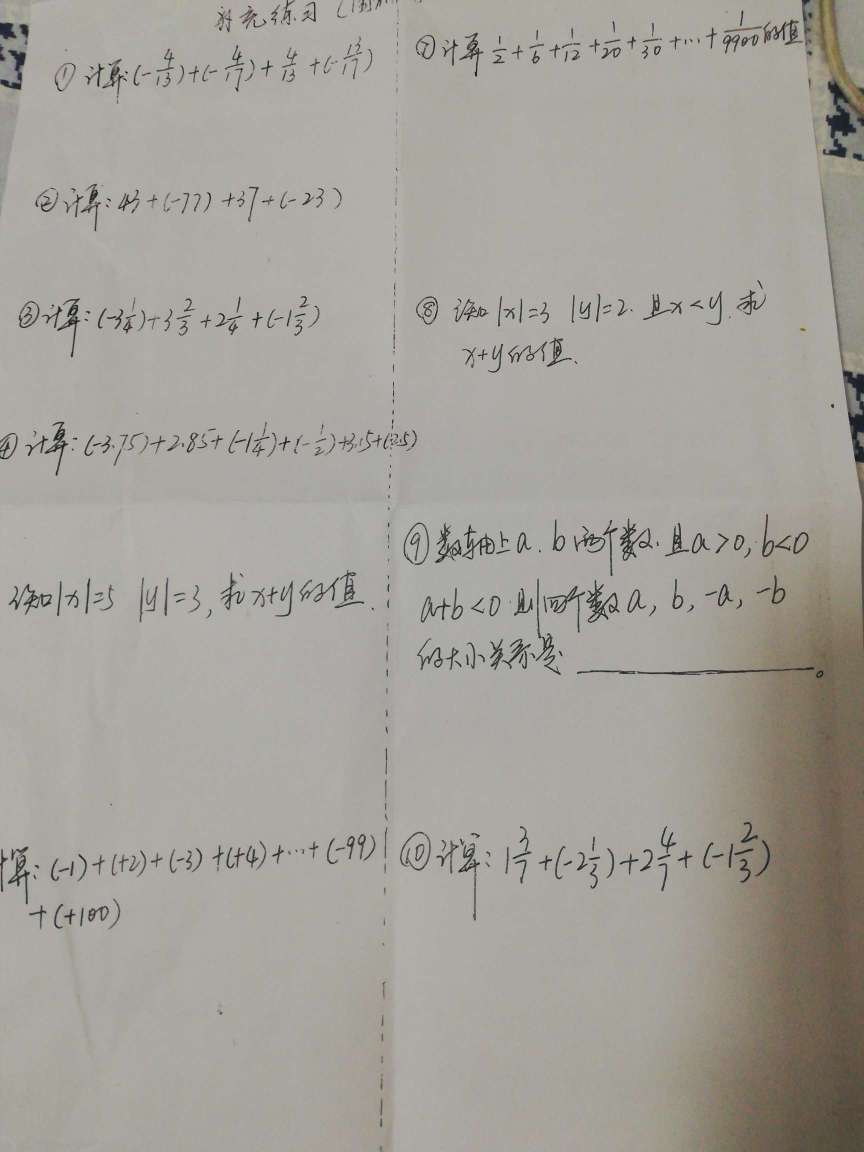 补充练习
① 计算:(-4/13)+(-4/17)+4/13+(-13/17)
② 计算:43+(-77)+37+(-23)
③ 计算:(-3 1/4)+3 2/3+2 1/4+(-1 2/3)
④ 计算:(-3.75)+2.85+(-1 1/4)+(-1/2)+3.15+(-2.5)
已知|x|=5 |y|=3,求x+y的值.
计算:(-1)+(+2)+(-3)+(+4)+…+(-99)
+(+100)
⑦ 计算 1/2+1/6+1/12+1/20+1/30+…+1/9900的值
⑧ 已知|x|=3 |y|=2.且x<y.求
x+y的值.
⑨ 数轴上a.b两个数.且a>0,b<0
a+b<0.则四个数a,b,-a,-b
的大小关系是________。
⑩ 计算:1 3/7+(-2 1/3)+2 4/7+(-1 2/3)